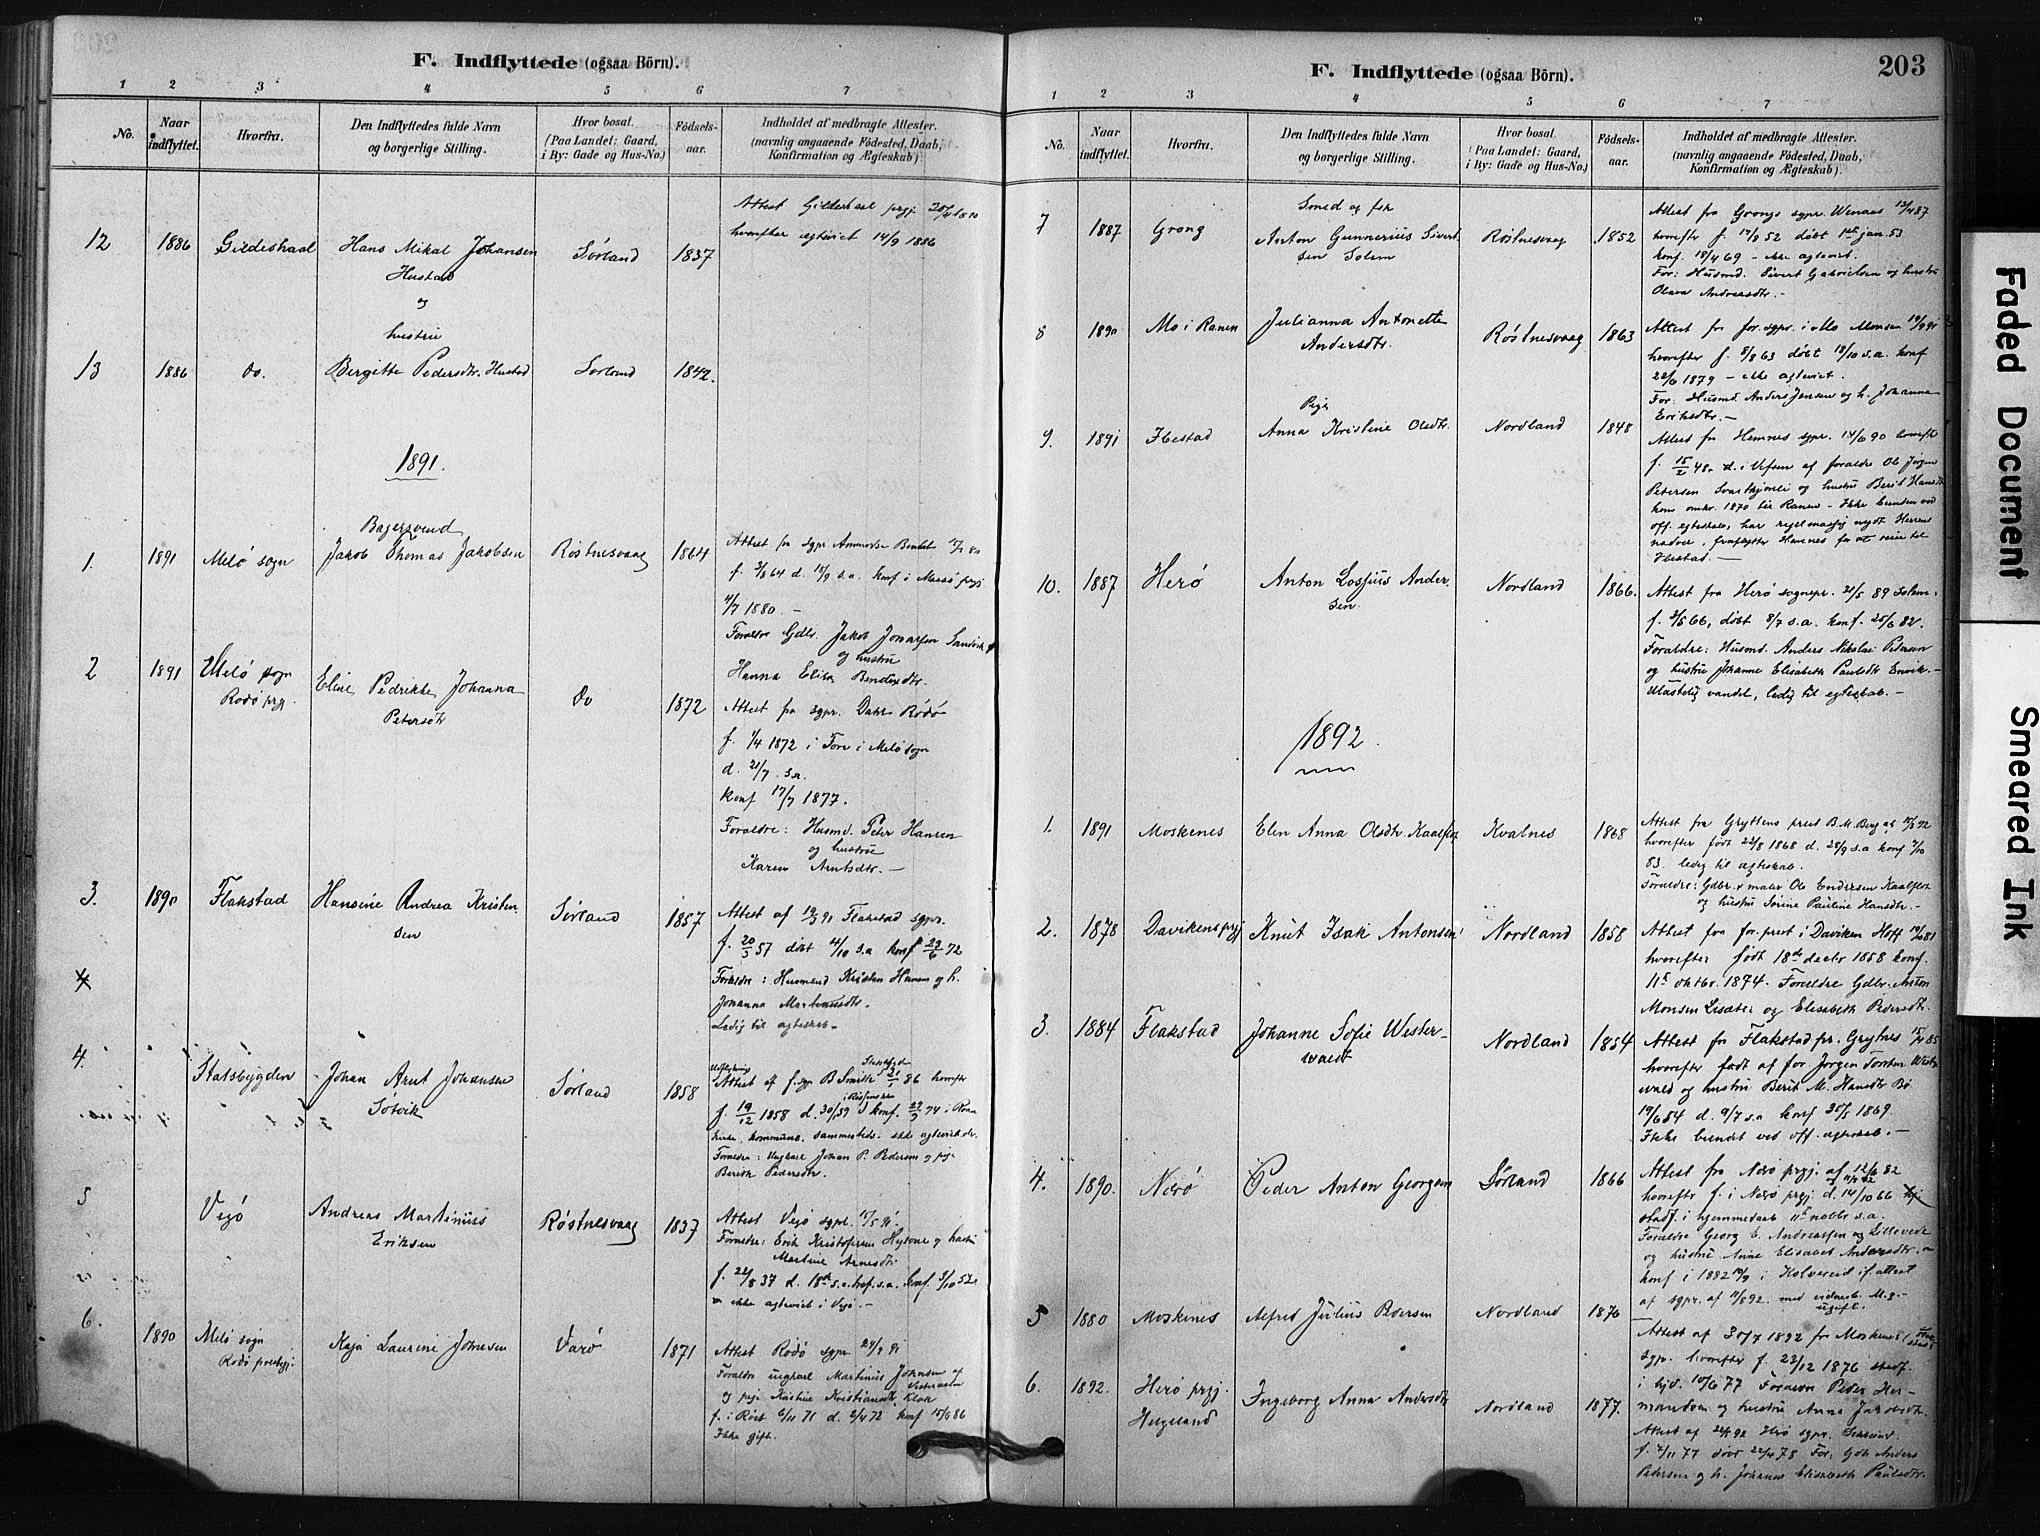 F. Indflyttede (ogsaa Börn).
1 2 3 4 5 6 7
No.
Naar indflyttet.
Hvorfra.
Den Indflyttedes fulde Navn
og borgerlige Stilling.
Hvor bosat.
(Paa Landet: Gaard,
i By: Gade og Hus-No.)
Födsels-
aar.
Indholdet af medbragte Attester.
(navnlig angaaende Födested, Daab,
Konfirmation og Ægteskab).
12 1886 Gildeskaal Hans Mikal Johansen Sørland 1837
Hustad
og
hustru
Attest Gildeskaal prgj.
hvorefter ægteviet 14/9 1886
13 1886 do. Birgitte Pedersdtr. Hustad Sørland 1842.
1891.
Bagersvend
1. 1891 Melø sogn Jakob Thomas Jakobsen Røstnesvaag 1864
f. 3/8 64 d. 18/9 s.a. konf i
4/7 1880. -
Forældre Gdbr. Jakob
og hustru
Hanna
2 1891 Melø sogn Eline Pedrikke Johanna Do 1872
Rødø prgj. Petersdtr
Attest fra sgpr. Rødø
f. 1/4 1872 i Fore i Melø sogn
d. 21/7. s.a.
Konf 17/7 1877.
Forældre: Husmd. Peter Hansen
og hustrue
Karen Arntsdtr. -
3. 1890 Flakstad Hansine Andrea Kristen- Sørland 1857
sen
Attest af 19/3 91 Flakstad sgpr.
f. 20/3 57 døbt 4/10 s.a konf 23/6 72
Forældre: Husmand Kristen Hansen og h.
Johanna Martinusdtr.
Ledig til ægteskab -
4
4 Statsbygden Johan Arnt Johansen Sørland 1858
Søtvik
Attest af
f. 19/12 1858 d. 30/1 59 konf.
kirke, kommune. sammesteds. ikke ægteviet der.
Forældre: Ungkarl Johan P. Pedersen og pge
Pedersdtr.
5 Vegø Andreas Martinus Røstnesvaag 1837
Eriksen
Attest Vegø sgpr. 15/5 91.
Forældre: Erik Kristofersen og hustru
Martine Arnesdtr
f. 22/8 37 d. 18de s.a. konf 3/10 52
ikke ægteviet i Vegø. -
6. 1890 Melø sogn Kaja Laurine Johnsen Værø 1871
Rødø prestgj.
Attest Rødø sgpr. 24/7 91
Forældre ungkarl Martinus Johnsen af
og pige Kristine Kristiansdtr.
f. i Røst 6/11 71 d. 2/4 72 konf 15/8 86
Ikke gift.
F. Indflyttede (ogsaa Börn).
203
1 2 3 4 5 6 7
No.
Naar indflyttet.
Hvorfra.
Den Indflyttedes fulde Navn
og borgerlige Stilling.
Hvor bosat.
(Paa Landet: Gaard,
i By: Gade og Hus-No.)
Födsels-
aar.
Indholdet af medbragte Attester.
(navnlig angaaende Födested, Daab,
Konfirmation og Ægteskab).
Smed og fsk
7 1887 Grong Anton Gunnerius Sivert- Røstnesvaag 1852
sen Solem
Attest fra Grongs sgpr. Wenaas 13/4 87
hvorefter f. 17/9 52 døbt 1ste jan. 53
konf. 18/4 69 - ikke ægteviet.
For: Husmd. Sivert Gabrielsen og hustru
Olava Andreasdtr. -
8 1890 Mo i Ranen Julianna Antonette Røstnesvaag 1863
Andersdtr.
Attest fra for. sgpr. i Mo Monsen 19/9 91
hvorefter f. 5/8 63 døbt 18/10 s.a. konf
22/6 1879 - ikke ægteviet.
For: Husmd. Anders Jensen og h. Johanna
Eriksdtr. -
Pige
9. 1891 Ibestad Anna Kristine Olsdtr. Nordland 1848
Attest fra Hemnes sgpr. 14/6 90 hvorefter
f. 15/2 48. d. i Vefsen af forældre Ole Jørgen
Petersen og hustru Berit Hansdtr
kom omkr. 1870 til Ranen - Ikke bunden ved
off. egteskab, har regelmæssig nydt Herrens
nadver, fraflytter Hemnes for at reise til
Ibestad. -
10. 1887 Herø Anton Lossius Ander- Nordland 1866.
sen.
Attest fra Herø sognepr. 21/5 89 Solem.
f. 3/5 66, døbt 8/7 s.a. konf. 25/6 82.
Forældre: Husmd. Anders Nikolai Petersen
og hustru Johanne Elisabeth Paulsdtr Envik. -
Ulastelig vandel, ledig til egteskab. -
1892.
1. 1891 Moskenes Elen Anna Olsdtr. Kvalnes 1868
Attest fra Gryttens prest B. M. Berg af 15/3 92
hvorefter født 22/8 1868 d. 28/9 s.a konf 7/10
83. ledig til ægteskab.
Forældre: Gdbr. & maler Ole Endresen
og hustru Sørine Pauline Hansdtr. -
2. 1878 Davikens prgj Knut Isak Antonsen Nordland 1858
Attest fra for. prest i Daviken Hoff
hvorefter født 18de decbr 1858 konf.
11te oktbr. 1874. Forældre Gdbr. Anton
Monsen og Elisabeth Pedersdtr.
3. 1884 Flakstad Johanne Sofie Wester- Nordland 1854
waldt
Attest fra Flakstad pr. Grytnes 15/7 85
hvorefter født af for Jørgen Torsten Wester
wald og hustru Berit M. Hansdtr Bø
19/6 54 d. 9/7 s.a konf 30/5 1869.
Ikke bundet ved off. ægteskab. -
4. 1890. Nærø Peder Anton Georgsen Sørland 1866
Attest fra Nærø prgj. af 12/6 82
hvorefter f. i Nærø prgj. d. 14/10 66
stadf. i hjemmedaab 11te novbr s.a.
Forældre Georg E. Andreassen
og hustru Anne Elisabet Andersdtr. -
konf i 1882 10/9 i Kolvereid if. attest
af sgpr. af 11/8 92.
ugift.
5 1880 Moskenes Alfred Julius Pedersen Nordland 1876
Attest af 30/7 1892 fra Moskenes
sgpr. hvorefter f. 23/12 1876 stadf.
i kjd. 10/6 77 Forældre Peder Her-
mandsen og hustru Anna Jakobsdtr.
6. 1892. Herø prgj. Ingeborg Anna Andersdtr Nordland 1877.
Helgeland
Attest af Herø sgpr.
f. 2/11 77 døbt 22/4 78 For. Gdb Anders
Pedersen og h. Johanne Elisabeth Paulsdtr.
Faded Document
Smeared Ink